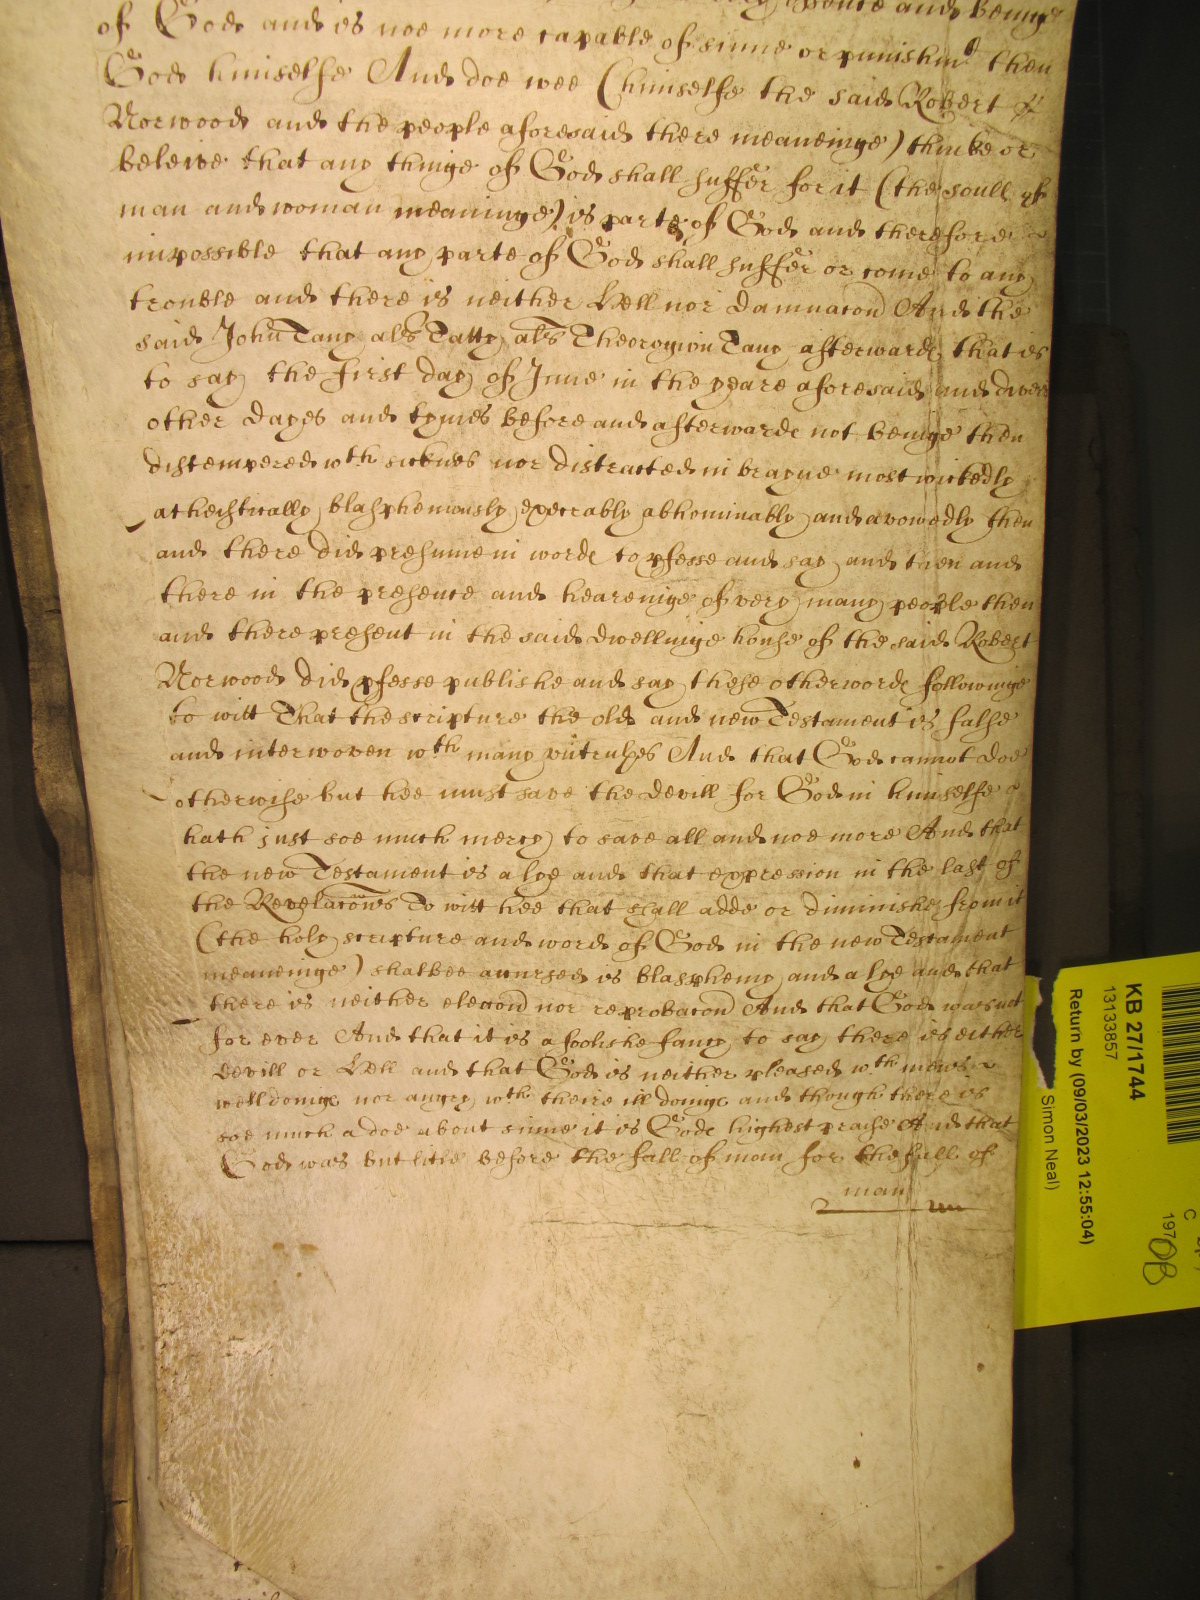 and beinge
of God and is noe more capable of sinne or punishmt then
God himselfe And doe wee (himselfe the said Robert
Norwood and the people aforesaid there meaneinge) thinke or
beleive that any thinge of God shall suffer for it (the soull of
man and woman meaninge) is parte of God and therefore
impossible that any parte of God shall suffer or come to any
trouble and there is neither Hell nor damnacon And the
said John Tany als Tatty als Theorogion Tany afterwards that is
to say the first day of June in the yeare aforesaid and divers
other dayes and tymes before and afterwards not beinge then
distempered wth sicknes nor distracted in brayne most wickedly
atheistically blasphemously execrably abhominably and avowedly then
and there did presume in words to pfesse and say and then and
there in the presence and heareinge of very many people then
and there present in the said dwellinge house of the said Robert
Norwood did pfesse publishe and say these other words followinge
to witt That the scripture the old and new Testament is false
and interwoven wth many untruthes And that God cannot doe
otherwise but hee must save the devill for God in himselfe
hath just soe much mercy to save all and noe more And that
the new Testament is a lye and that expression in the last of
the Revelacons To witt hee that shall adde or diminishe from it
(the holy scripture and word of God in the new Testament
meaneinge) shalbee accursed is blasphemy and a lye and that
there is neither eleccon nor reprobacon And that God was not
for ever And that it is a foolishe fancy to say there is either
devill or Hell and that God is neither pleased wth mens
well doinge nor angry wth theire ill doinge and though there is
soe much adoe about sinne it is Gods highest praise And that
God was but litle before the fall of man for the fall of
man
KB 27/1744
13133857
Return by (09/03/2023 12:55:04)
Simon Neal)